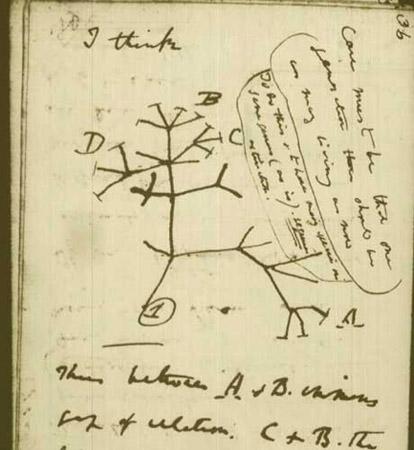 I think
36
Case must be that one
generation then should be
as many living as now
To do this & to have many species in
same genus (as is) requires
extinction.
B
C
D
A
1
Thus between A & B. immense
gap of relation. C & B. the